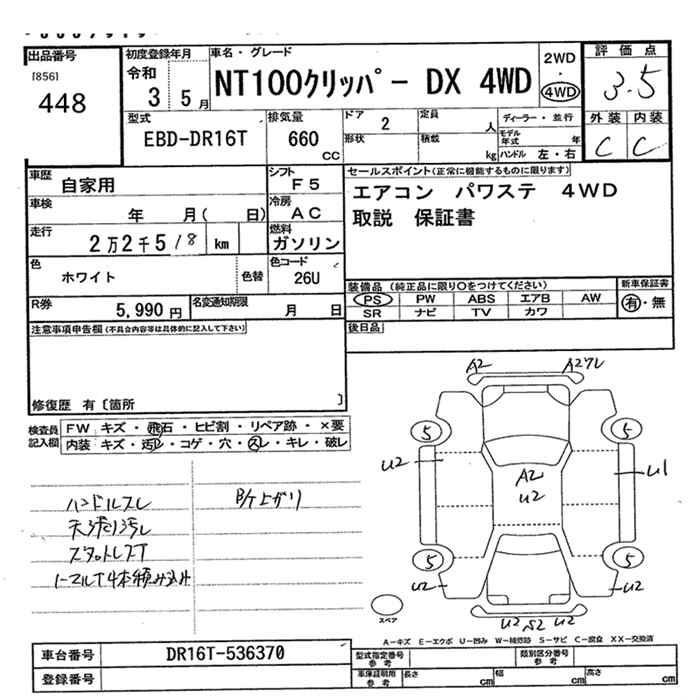 出品番号
[856]
448
初度登録年月
令和
3 5月
車名・グレード
NT100クリッパー DX 4WD
2WD
・
4WD
評価点
3.5
外装 内装
C C
型式
EBD-DR16T
排気量
660
CC
ドア
2
形状
定員
人
積載
kg
ディーラー・並行
モデル年式 年
ハンドル 左・右
車歴
自家用
シフト
F5
車検
年 月( 日)
冷房
AC
走行
2万2千518 km
燃料
ガソリン
色
ホワイト
色替
色コード
26U
R券
5,990円
名変通知期限
月 日
セールスポイント(正常に機能するものに限ります)
エアコン パワステ 4WD
取説 保証書
装備品 (純正品に限り○をつけてください)
PS PW ABS エアB AW
SR ナビ TV カワ
新車保証書
有・無
後日品
注意事項申告欄(不具合内容等は具体的に記入して下さい)
修復歴 有〔箇所 〕
検査員
記入欄
FW キズ・飛石・ヒビ割・リペア跡・×要
内装 キズ・汚レ・コゲ・穴・スレ・キレ・破レ
ハンドルスレ
B/ケ上がり
天張り汚レ
スタットレスT
ノーマルT4本積み込み
A2 A2ワレ
5 5
U2 A2 U2 U1
5 5
U2 U2
U2 S2 U2
スペア
A-キズ E-エクボ U-凹み W-補修跡 S-サビ C-腐食 XX-交換済
車台番号
DR16T-536370
登録番号
型式指定番号
参考
類別区分番号
参考
車庫証明用
参考
長さ cm
幅 cm
高さ cm